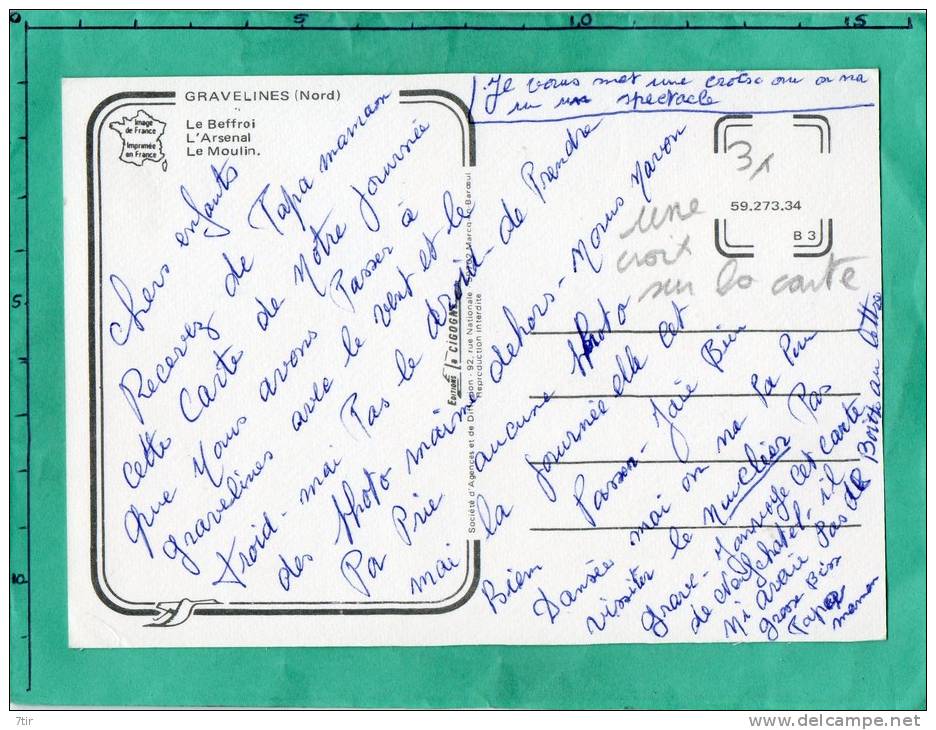 0
5
10
15
5
10
GRAVELINES (Nord)
Le Beffroi
L'Arsenal
Le Moulin.
Image
de France
Imprimée
en France
Je vous met une croise ou on a
vu un spectacle
3,
une
croix
sur la carte
59.273.34
B 3
EDITIONS la CIGOGNE
Société d'Agences et de Diffusion - 92, rue Nationale Marcq-en-Barœul
Reproduction interdite
Chers enfants
Recevez de Papa maman
cette Carte de Notre Journée
que Nous avons Passer à
gravelines avec le vent et le
froid - mai Pas le droid - de Prendre
des Photo maime dehors - Nous Navon
Pa Prie aucune Photo
mai la Journée elle cet
Bien Passer - Jaie Bien
Dansée mai on na Pa Puu
vissiter le Nuucléer Pas
grave - Janvoye cet carte
de Neufchatel - il
Ni avaie Pas de Boitte au lettre
grosse Biss
Papa
maman
7tir
www.delcampe.net